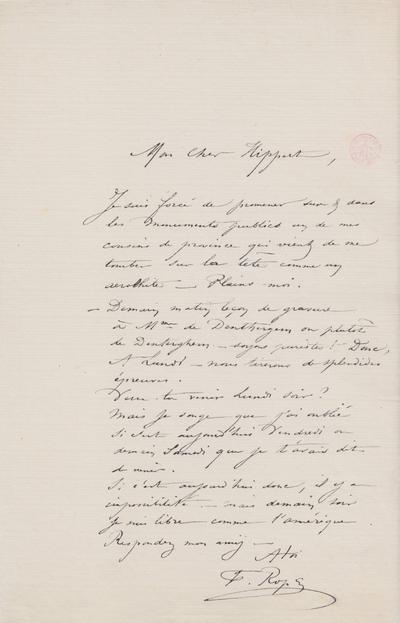 Mon cher Hippert,
Je suis forcé de promener sur & dans
les Monuments publics un de mes
cousins de province qui vient de me
tomber sur la tête comme un
aérolithe — Plains-moi.
— Demain matin, leçon de gravure
à Mme de Denthergem ou plutôt
de Denterghem — soyons puristes! Donc,
A Lundi — nous tirerons de splendides
épreuves.
Veux-tu venir Lundi soir?
Mais je songe que j'ai oublié
Si c'est aujourd'hui Vendredi ou
demain Samedi que je t'avais dit
de venir.
Si c'est aujourd'hui donc, il y a
impossibilité — mais demain soir
je suis libre comme l'amérique.
Respondez mon amy —
A toi
F. Rops